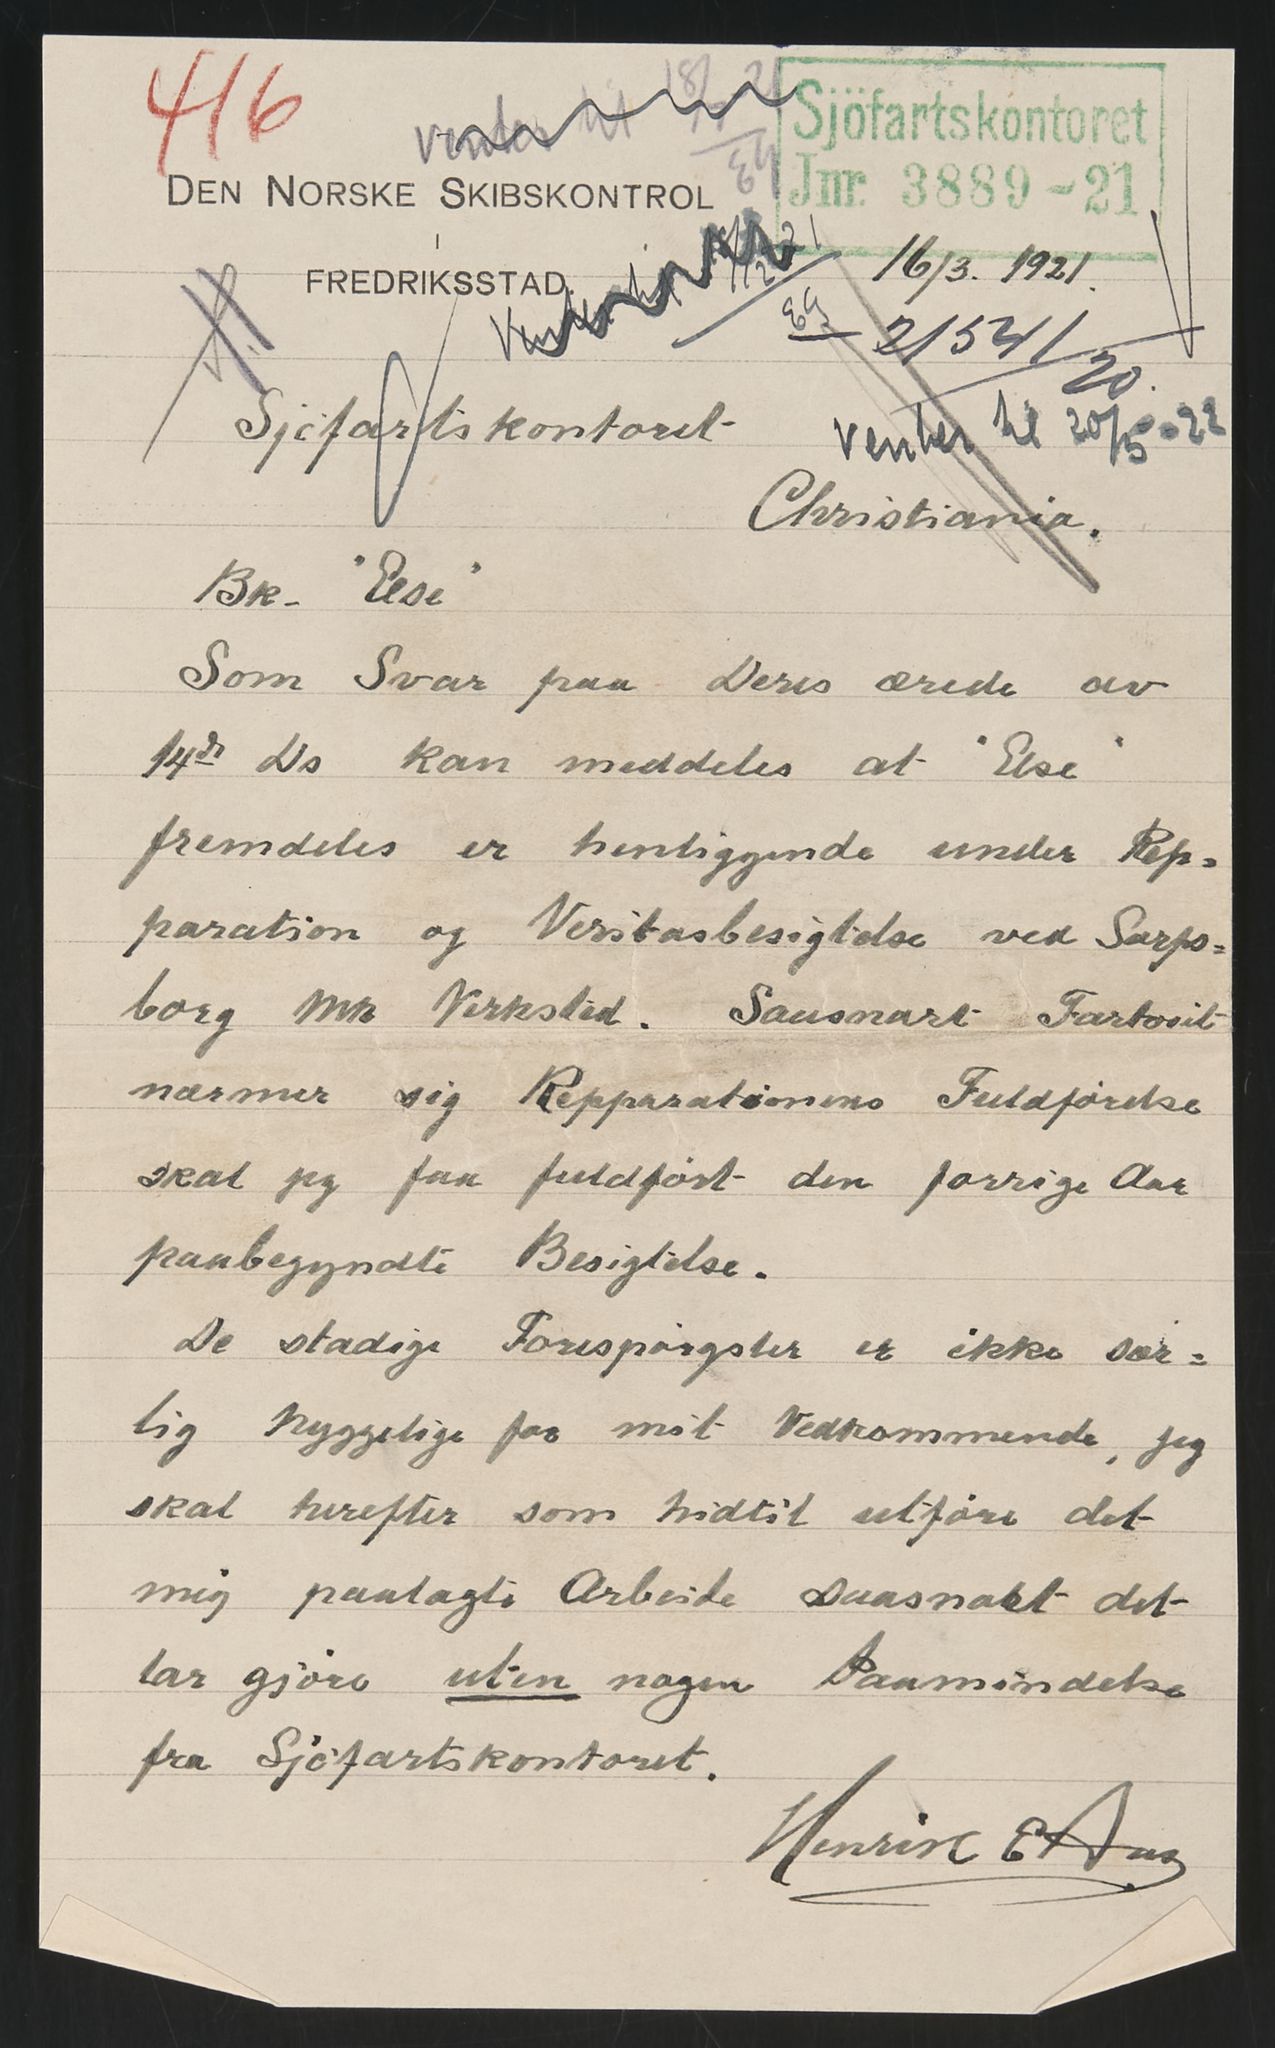 416
venter til 18/7 21
Sjöfartskontoret
Jnr. 3889-21
DEN NORSKE SKIBSKONTROL
I
FREDRIKSSTAD.
16/3. 1921.
21541/20.
Sjøfartskontoret
venter til 20/5-22
Christiania.
Bk. "Else"
Som Svar paa Deres ærede av
14de Ds kan meddeles at "Else"
fremdeles er henliggende under Rep=
paration og Veritasbesigtelse ved Sarps=
borg Mk Verksted. Saasnart Fartøiet
nærmer sig Repparationens Fuldførelse
skal jeg faa fuldført den forrige Aar
paabegyndte Besigtelse.
De stadige Forespørgsler er ikke sær=
lig hyggelige for mit Vedkommende, jeg
skal herefter som hidtil utføre det
mig paalagte Arbeide saasnart det
lar gjøre uten nogen Paamindelse
fra Sjøfartskontoret.
Henrik E Aas